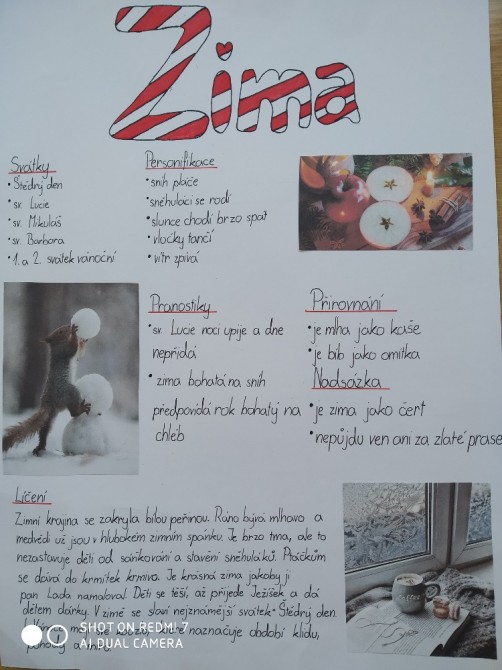 Zima
Svátky
• Štědrý den
• sv. Lucie
• sv. Mikuláš
• sv. Barbora
• 1. a 2. svátek vánoční
Personifikace
• sníh pláče
• sněhuláci se rodí
• slunce chodí brzo spát
• vločky tančí
• vítr zpívá
Pranostiky
• sv. Lucie noci upije a dne
nepřidá
• zima bohatá na sníh
předpovídá rok bohatý na
chléb
Přirovnání
• je mlha jako kaše
• je bíb jako omítka
Nadsázka
• je zima jako čert
• nepůjdu ven ani za zlaté prase
Líčení
Zimní krajina se zakryla bílou peřinou. Ráno bývá mlhavo a
medvědi už jsou v hlubokém zimním spánku. Je brzo tma, ale to
nezastavuje děti od sáňkování a stavění sněhuláků. Ptáčkům
se dává do krmítek krmivo. Je krásná zima jakoby ji
pan Lada namaloval. Děti se těší, až přijede Ježíšek a dá
dětem dárky. V zimě se slaví nejznámější svátek - Štědrý den.
naznačuje období klidu,
SHOT ON REDMI 7
AI DUAL CAMERA